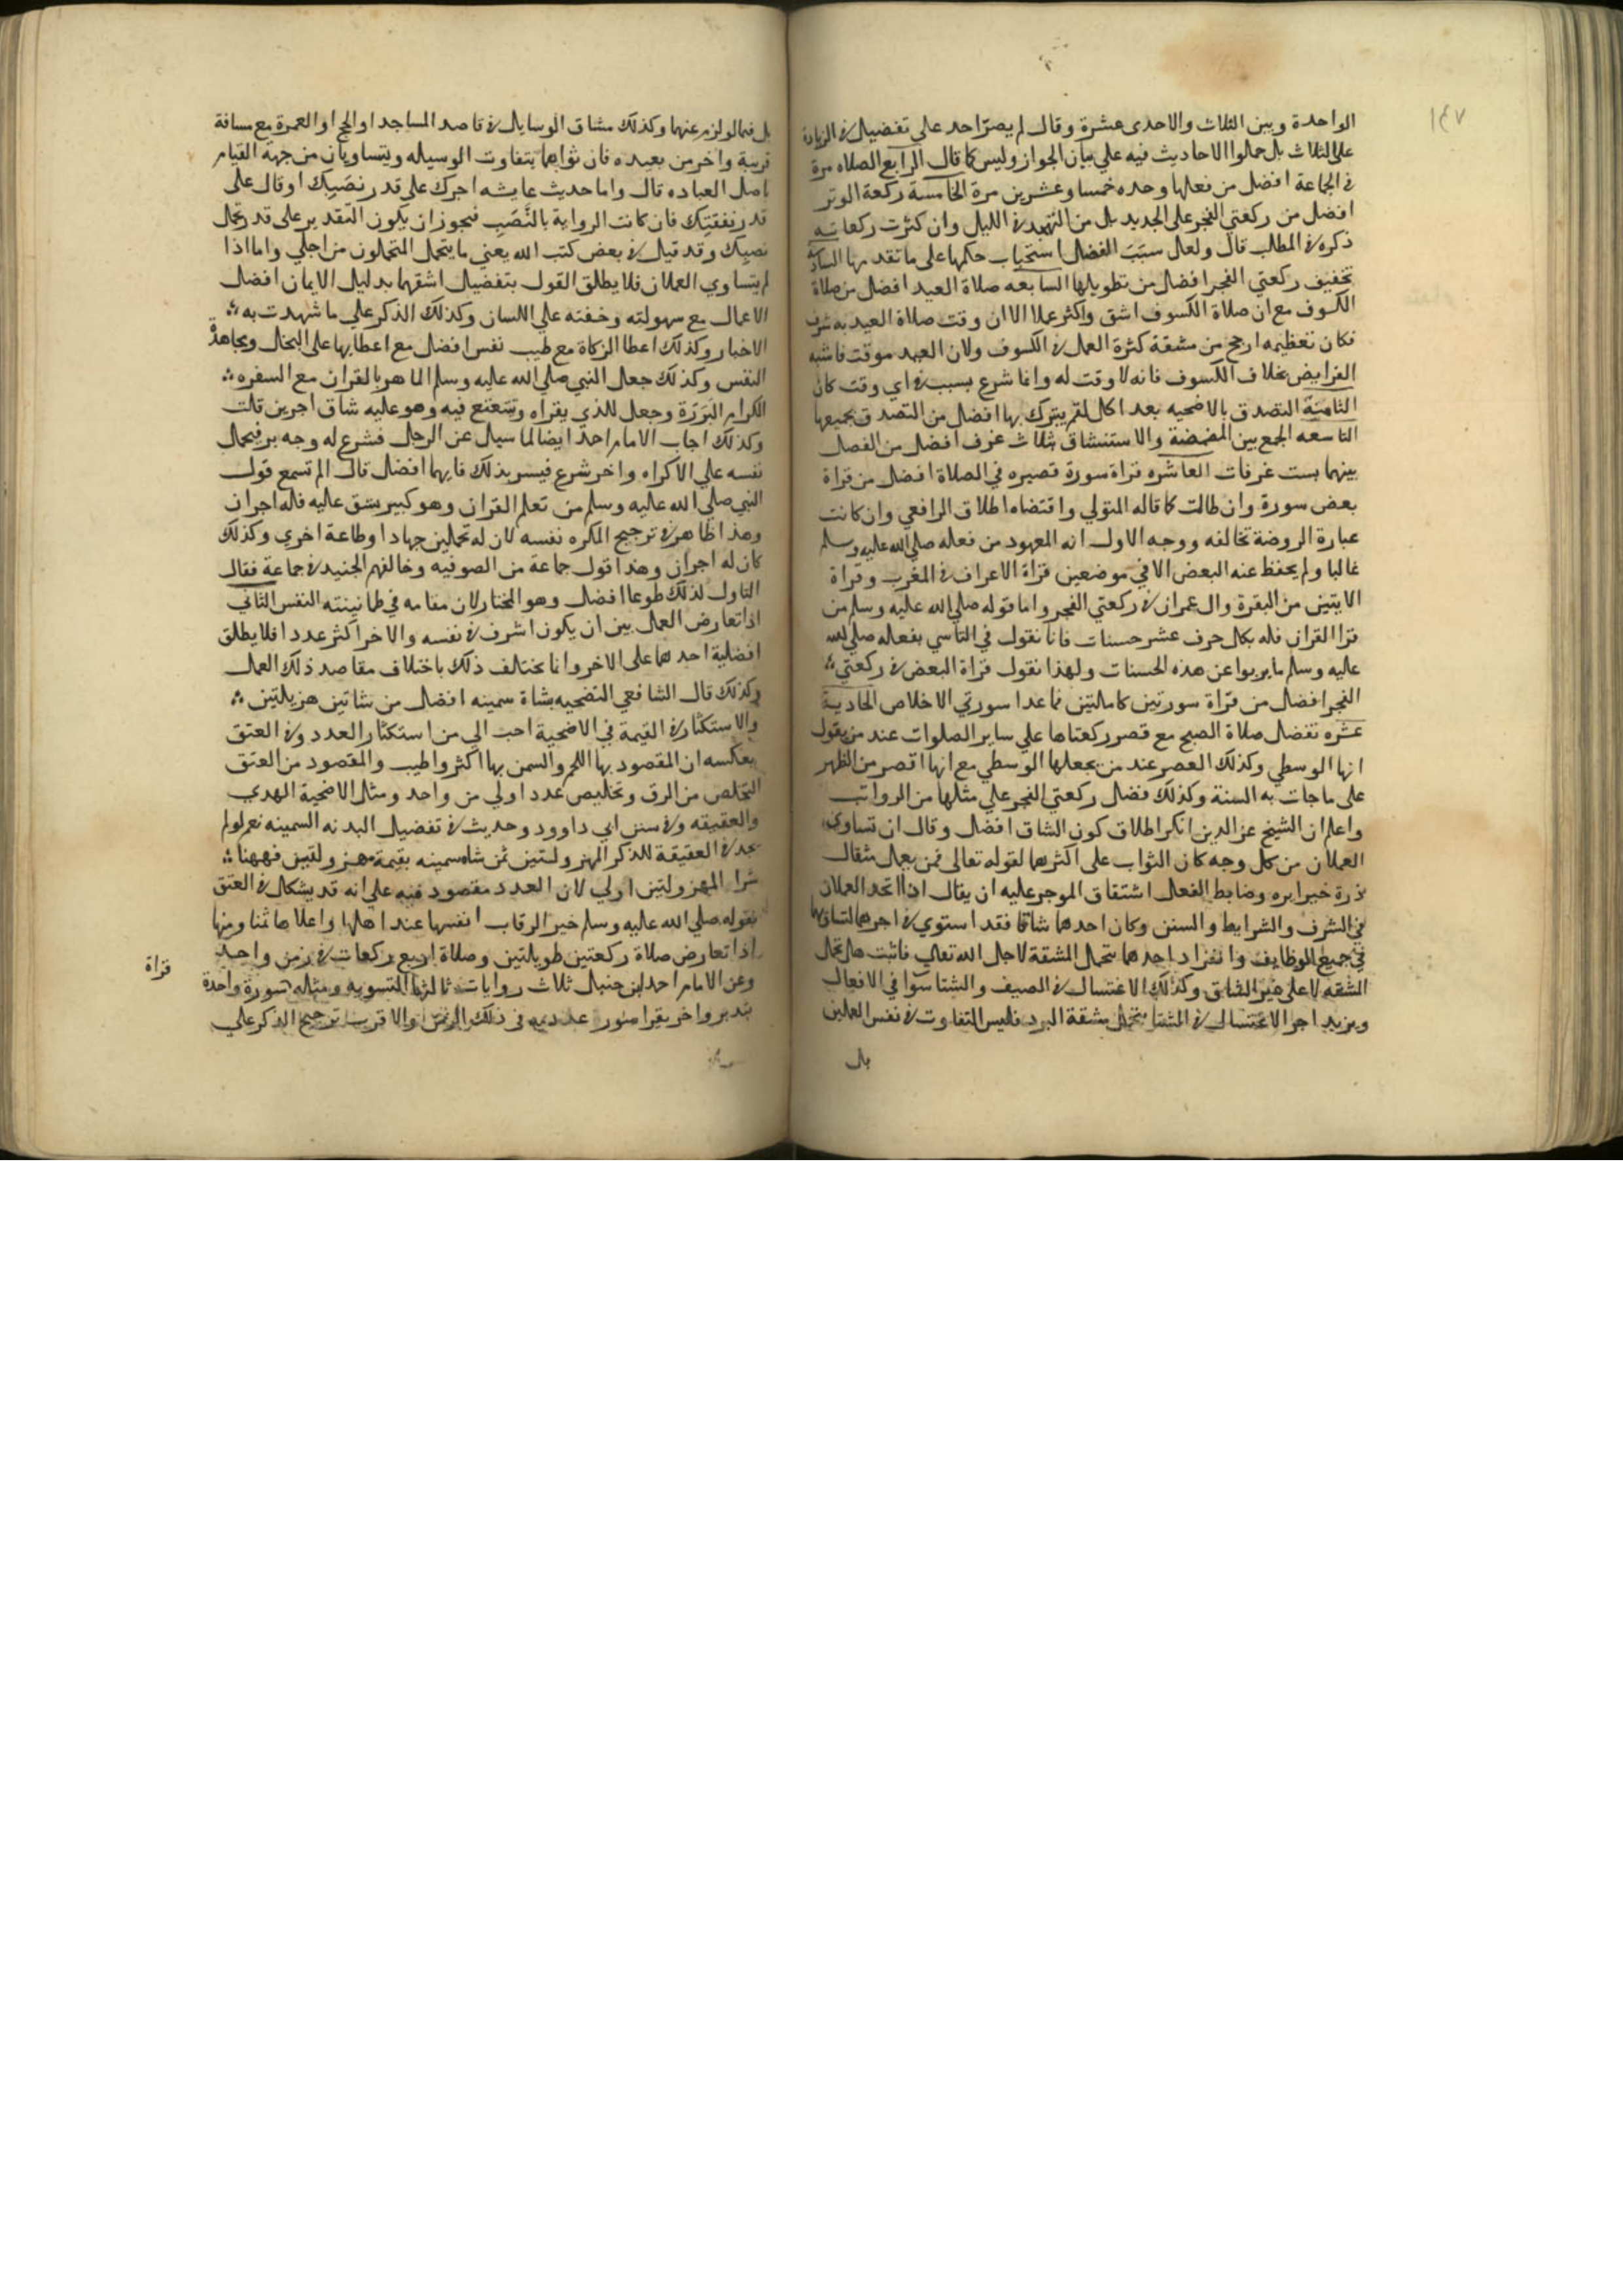 ١٤٧
الواحدة وبين الثلاث والاحدى عشرة وقال لم يصر احد علي تفضيل في الزيادة
على الثلاث بل حملوا الاحاديث فيه علي بيان الجواز وليس كما قال الرابع الصلاه مرة
في الجماعة افضل من فعلها وحده خمسا وعشرين مرة الخامسة ركعة الوتر
افضل من ركعتي الفجر على الجديد بل من التهجد في الليل وان كثرت ركعاته
ذكره في المطلب قال ولعل سبب الفضل استحباب حكمها على ما تقدمها السادسة
تخفيف ركعتي الفجر افضل من تطويلها السابعه صلاة العيد افضل من صلاة
الكسوف مع ان صلاة الكسوف اشق واكثر عملا الا ان وقت صلاة العيد به شرف
فكان تعظيمه ارجح من مشقة كثرة العمل في الكسوف ولان العيد موقت فاشبه
الفرايض بخلاف الكسوف فانه لا وقت له وانما شرع بسبب في اي وقت كان
الثامنة التصدق بالاضحيه بعد اكل لقم يتبرك بها افضل من التصدق بجميعها
التاسعه الجمع بين المضمضة والاستنشاق بثلاث غرف افضل من الفصل
بينهما بست غرفات العاشره قراة سورة قصيره في الصلاة افضل من قراة
بعض سورة وان طالت كما قاله المتولي واقتضاه اطلاق الرافعي وان كانت
عبارة الروضة تخالفه ووجه الاول انه المعهود من فعله صلى الله عليه وسلم
غالبا ولم يحفظ عنه البعض الا في موضعين قراة الاعراف في المغرب وقراة
الايتين من البقرة وال عمران في ركعتي الفجر واما قوله صلى الله عليه وسلم من
قرا القران فله بكل حرف عشر حسنات فانا نقول في التاسي بفعله صلى الله
عليه وسلم ما يربوا عن هذه الحسنات ولهذا نقول قراة البعض في ركعتي
الفجر افضل من قراة سورتين كاملتين ما عدا سورتي الاخلاص الحادية
عشره تفضل صلاة الصبح مع قصر ركعتاها علي ساير الصلوات عند من يقول
انها الوسطي وكذلك العصر عند من يجعلها الوسطي مع انها اقصر من الظهر
على ما جات به السنة وكذلك فضل ركعتي الفجر علي مثلها من الرواتب
واعلم ان الشيخ عز الدين انكر اطلاق كون الشاق افضل وقال ان تساوى
العملان من كل وجه كان الثواب على اكثرهما لقوله تعالى فمن يعمل مثقال
ذرة خيرا يره وضابط الفعل اشتقاق الموجر عليه ان يقال اذا اتحد العملان
في الشرف والشرايط والسنن وكان احدهما شاقا فقد استوي في اجرهما لتساويهما
في جميع الوظايف وانفراد احدهما بتحمل المشقة لاجل الله تعالي فاثبت على تحمل
المشقه لا على غير الشاق وكذلك الاغتسال في الصيف والشتا سوا في الافعال
ويزيد اجر الاغتسال في الشتا بتحمل مشقة البرد فليس التفاوت في نفس العملين
بل
بل فيما لزم عنهما وكذلك مشاق الوسايل في قاصد المساجد او الحج او العمرة مع مسافة
قريبة واخر من بعيده فان ثوابهما يتفاوت الوسيله ويتساويان من جهة القيام
باصل العباده قال واما حديث عايشه اجرك على قدر نصبك او قال على
قدر نفقتك فان كانت الرواية بالنصب فيجوز ان يكون التقدير على قدر تحمل
نصبك وقد قيل في بعض كتب الله يعني ما يتحمل المتحملون من اجلي واما اذا
لم يتساوي العملان فلا يطلق القول بتفضيل اشقهما بدليل الايمان افضل
الاعمال مع سهولته وخفته علي اللسان وكذلك الذكر علي ما شهدت به
الاخبار وكذلك اعطا الزكاة مع طيب نفس افضل مع اعطايها على البخل ومجاهدة
النفس وكذلك جعل النبي صلي الله عليه وسلم الماهر بالقران مع السفره
الكرام البررة وجعل للذي يقراه ويتتعتع فيه وهو عليه شاق اجرين قلت
وكذلك اجاب الامام احمد ايضا لما سيل عن الرجل فشرع له وجه بر فيحمل
نفسه علي الاكراه واخر شرع فيسر بذلك فايهما افضل قال الم تسمع قول
النبي صلي الله عليه وسلم من تعلم القران وهو كبير يشق عليه فله اجران
وهذا ظاهر في ترجيح المكره نفسه لان له عملين جهادا وطاعة اخري وكذلك
كان له اجران وهذا قول جماعة من الصوفيه وخالفهم الجنيد في جماعة فقال
الباذل لذلك طوعا افضل وهو المختار لان مقامه في طمانينته النفس الثاني
اذا تعارض العمل بين ان يكون اشرف في نفسه والاخر اكثر عددا فلا يطلق
افضلية احدهما على الاخر وانما يختلف ذلك باختلاف مقاصد ذلك العمل
وكذلك قال الشافعي التضحيه بشاة سمينه افضل من شاتين هزيلتين
والاستكثار في القيمة في الاضحية احب الي من استكثار العدد وفي العتق
بعكسه ان المقصود بها اللحم والسمن بها اكثر واطيب والمقصود من العتق
التخلص من الرق وتخليص عدد اولي من واحد ومثل الاضحية الهدي
والعقيقه وفي سنن ابي داوود وحديث في تفضيل البدنه السمينه نعم لو لم
يجد في العقيقة للذكر المهزولتين ثمن شاة سمينه بقيمة مهزولتين فههنا
شرا المهزولتين اولي لان العدد مقصود فيه علي انه قد يشكل في العتق
بقوله صلي الله عليه وسلم خير الرقاب انفسها عند اهلها واعلاها ثمنا ومنها
اذا تعارض صلاة ركعتين طويلتين وصلاة اربع ركعات في زمن واحد
وعن الامام احمد ابن حنبل ثلاث روايات ثالثها التسويه ومثله سورة واحدة
قراة
بتدبر واخر يقرا سور عديده في ذلك الزمن والاقرب ترجيح الذكر علي